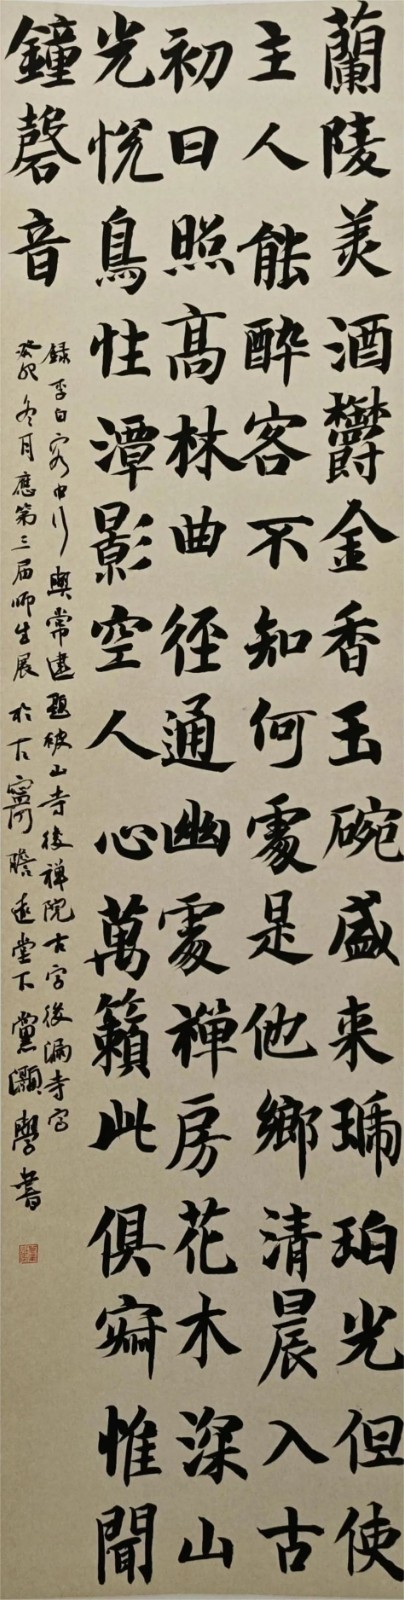 蘭陵美酒鬱金香玉碗盛来琥珀光但使
主人能醉客不知何處是他鄉清晨入古
初日照高林曲徑通幽處禪房花木深山
光悅鳥性潭影空人心萬籟此俱寂惟聞
鐘磬音
録李白客中行與常建題破山寺後禪院古字後漏寺字
癸卯冬月應第三届师生展於古寧河瞻遠堂下黨灝學書